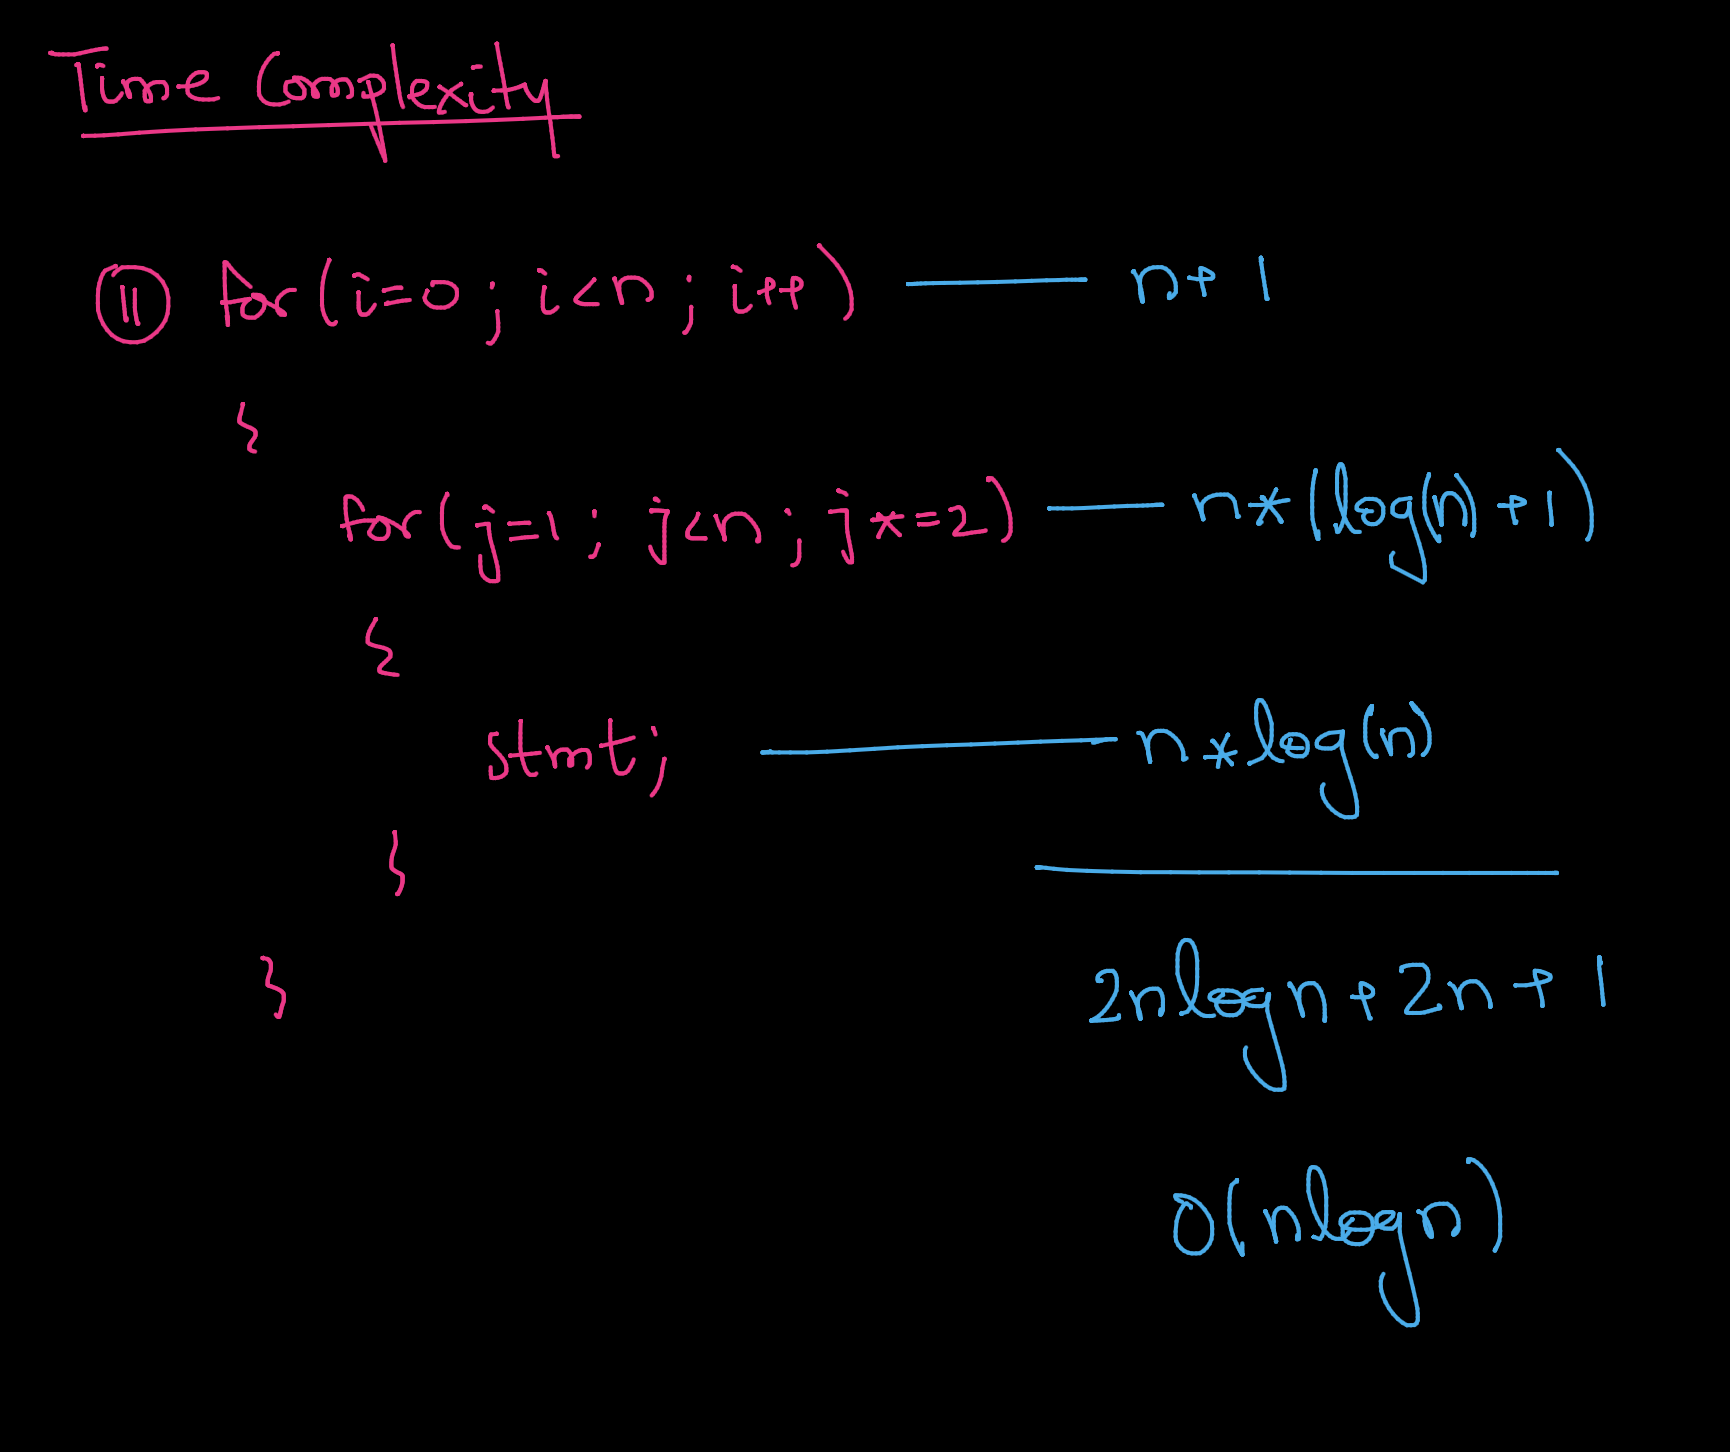 Time Complexity
11 for(i=0; i<n; i++) —— n+1
{
for(j=1; j<n; j*=2) —— n*(log(n)+1)
{
stmt; —— n*log(n)
}
}
2nlogn+2n+1
O(nlogn)